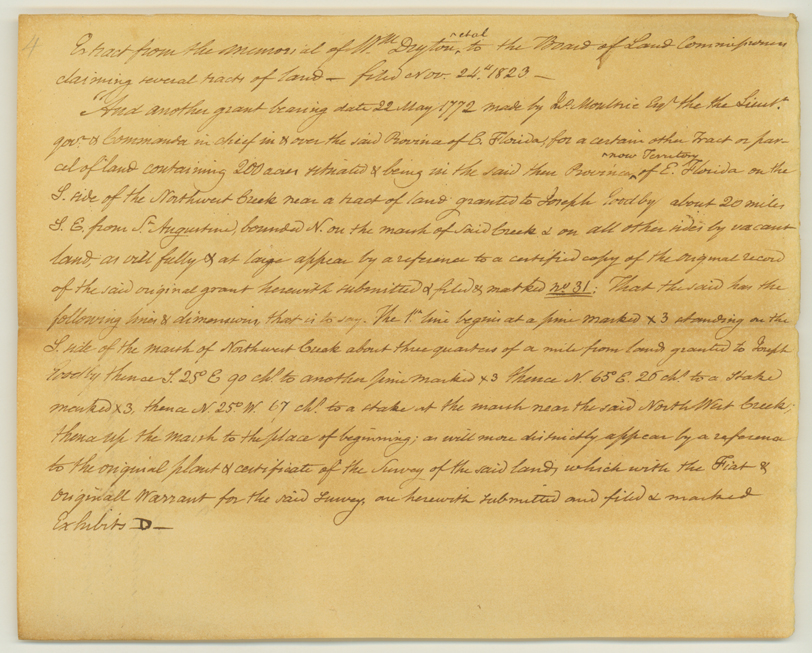 4
Extract from the memorial of Wm. Drayton, et al to the Board of Land Commissioners
claiming several tracts of land — filed Nov. 24th 1823 —
"And another grant bearing date 22 May 1772 made by Jno. Moultrie Esqr. the the Lieut.
govr. & Commander in chief in & over the said Province of E. Florida, for a certain other Tract or par-
cel of land containing 200 acres situated & being in the said then Province, now Territory of E. Florida on the
S. side of the Northwest Creek near a tract of land granted to Joseph Goodby about 20 miles
S. E. from St. Augustine, bounded N. on the marsh of said Creek & on all other sides by vacant
land, as will fully & at large appear by a reference to a certified copy of the original record
of the said original grant herewith submitted & filed & marked no 31: That the said has the
following lines & dimensions, that is to say. The 1st line begins at a pine marked x3 standing on the
S. side of the marsh of Northwest Creek about three quarters of a mile from land granted to Joseph
Goodby thence S. 25° E 90 chs. to another pine marked x3 thence N. 65° E. 26 chs. to a Stake
marked x3, thence N. 25° W. 67 chs. to a stake at the marsh near the said North West Creek;
thence up the marsh to the place of beginning; as will more distinctly appear by a reference
to the original platt & certificate of the Survey of the said land, which with the Fiat &
Originall Warrant for the said Survey, are herewith submitted and filed & marked
Exhibits D —